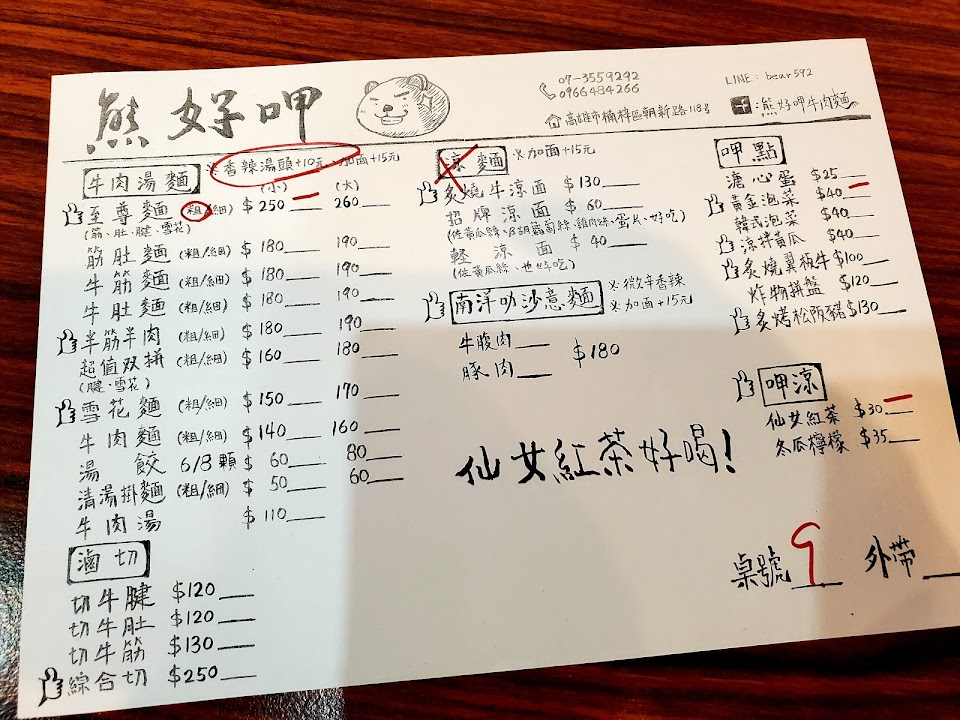 熊好呷
07-3559292
0966484266
高雄市楠梓區朝新路118号
LINE: bear592
熊好呷牛肉麵
牛肉湯麵 ※香辣湯頭+10元、加面+15元
(小) (大)
至尊麵 (粗/細) $250 260
(筋、肚、腱、雪花)
筋肚麵 (粗/細) $180 190
牛筋麵 (粗/細) $180 190
牛肚麵 (粗/細) $180 190
半筋半肉 (粗/細) $180 190
超值双拼 (粗/細) $160 180
(腱、雪花)
雪花麵 (粗/細) $150 170
牛肉麵 (粗/細) $140 160
湯餃 6/8顆 $60 80
清湯掛麵 (粗/細) $50 60
牛肉湯 $110
滷切
切牛腱 $120
切牛肚 $120
切牛筋 $130
綜合切 $250
涼麵 ※加面+15元
炙燒牛涼面 $130
招牌涼面 $60
(佐黃瓜絲、胡蘿蔔絲、雞肉絲、蛋片、好吃)
輕涼面 $40
(佐黃瓜絲、也好吃)
南洋叻沙意麵 ※微辛香辣
※加面+15元
牛腹肉 $180
豚肉
呷點
溏心蛋 $25
黃金泡菜 $40
韓式泡菜 $40
涼拌黃瓜 $40
炙燒翼板牛 $100
炸物拼盤 $120
炙烤松阪豬 $130
呷涼
仙女紅茶 $30
冬瓜檸檬 $35
仙女紅茶好喝!
桌號 9 外帶